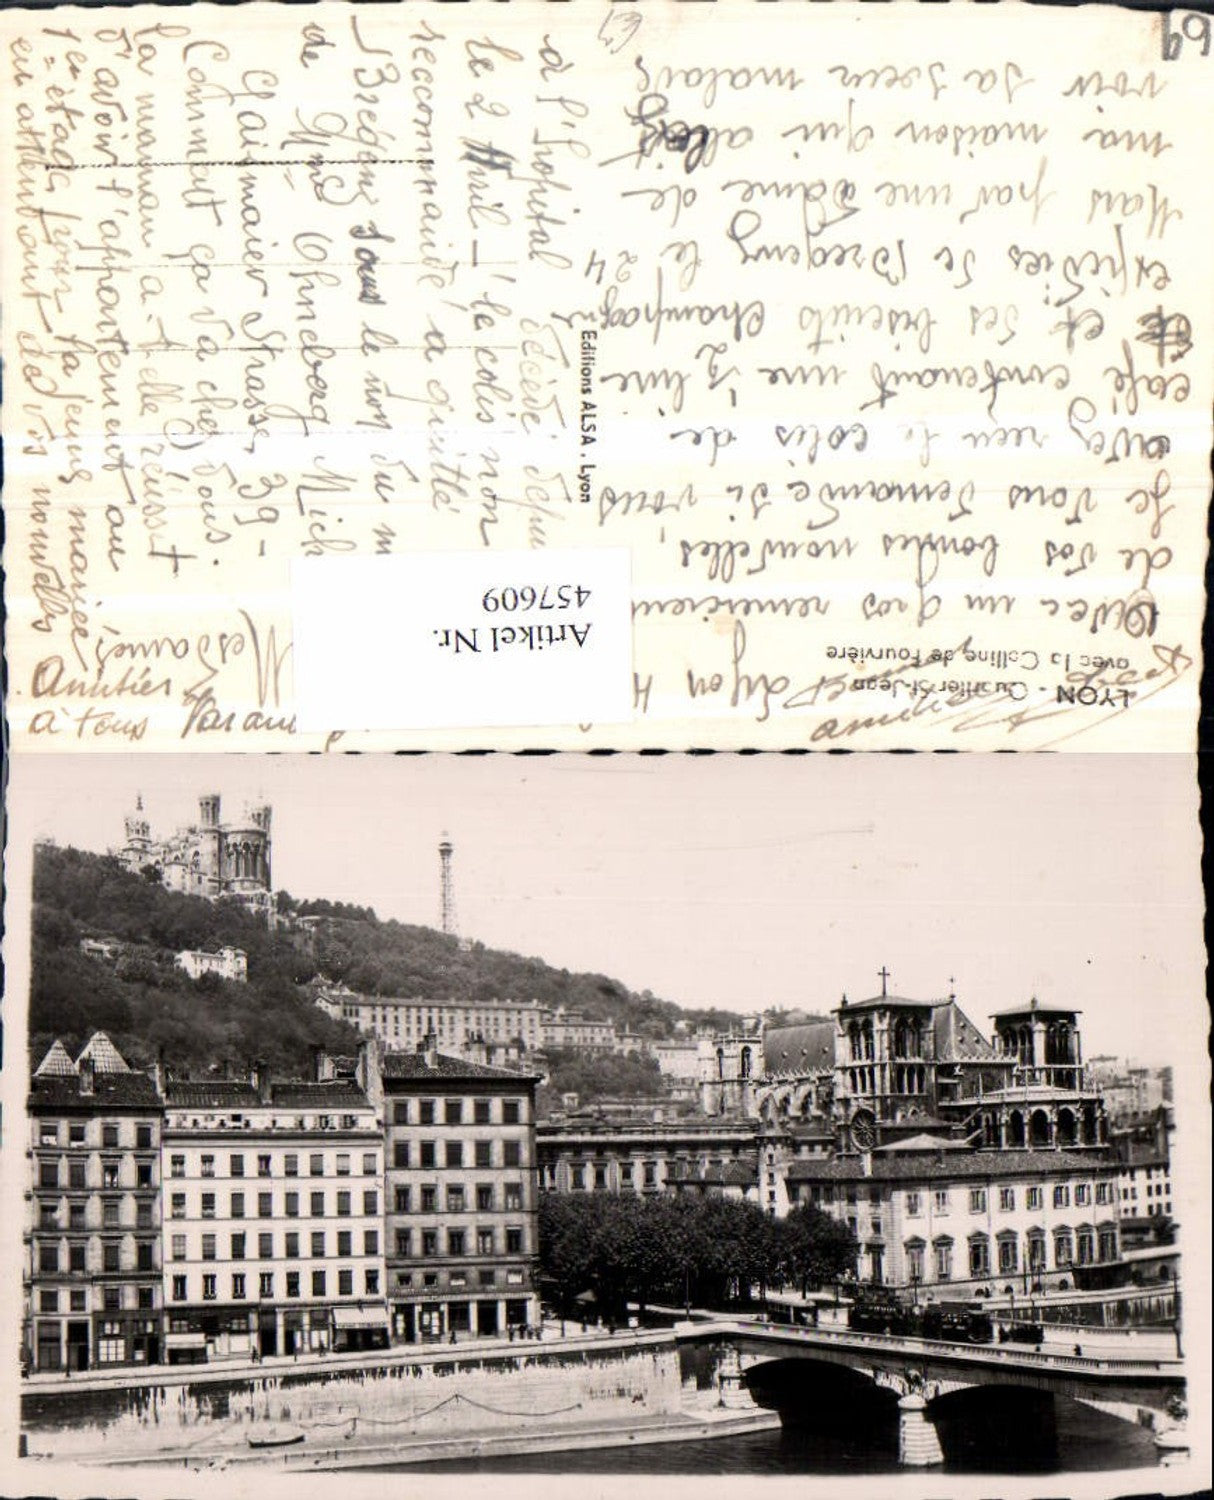 69
LYON - Quartier St-Jean
avec la Colline de Fourvière
Editions ALSA . Lyon
Artikel Nr.
457609
Lyon
Avec un gros remerciement
de vos bonnes nouvelles,
Je vous demande si vous
avez reçu le colis de
café contenant une 1/2 livre
et des biscuits Champagne
expédiés de Bregenz le 24
Mars par une dame de
ma maison qui allait
voir sa soeur malade
à l'hopital décédé
le 2 Avril - le colis non
reccommandé a quitté
Bregenz sous le nom du
de Mme
Gaismaier Strasse, 39 -
Comment ça va chez vous.
la maman a-t-elle réussit
d'avoir l'appartement au
1er étage pour la jeune mariée
en attendant de vos nouvelles
Mesdames
Amitiés
à tous